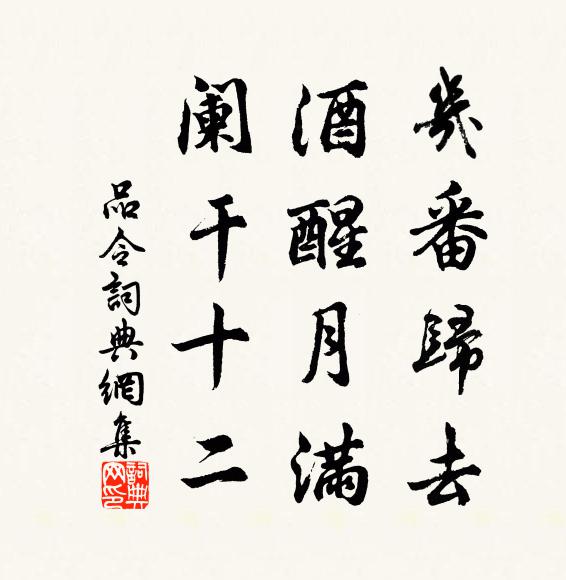 幾番歸去
酒醒月滿
闌干十二
品令詞典網集
詞典網印